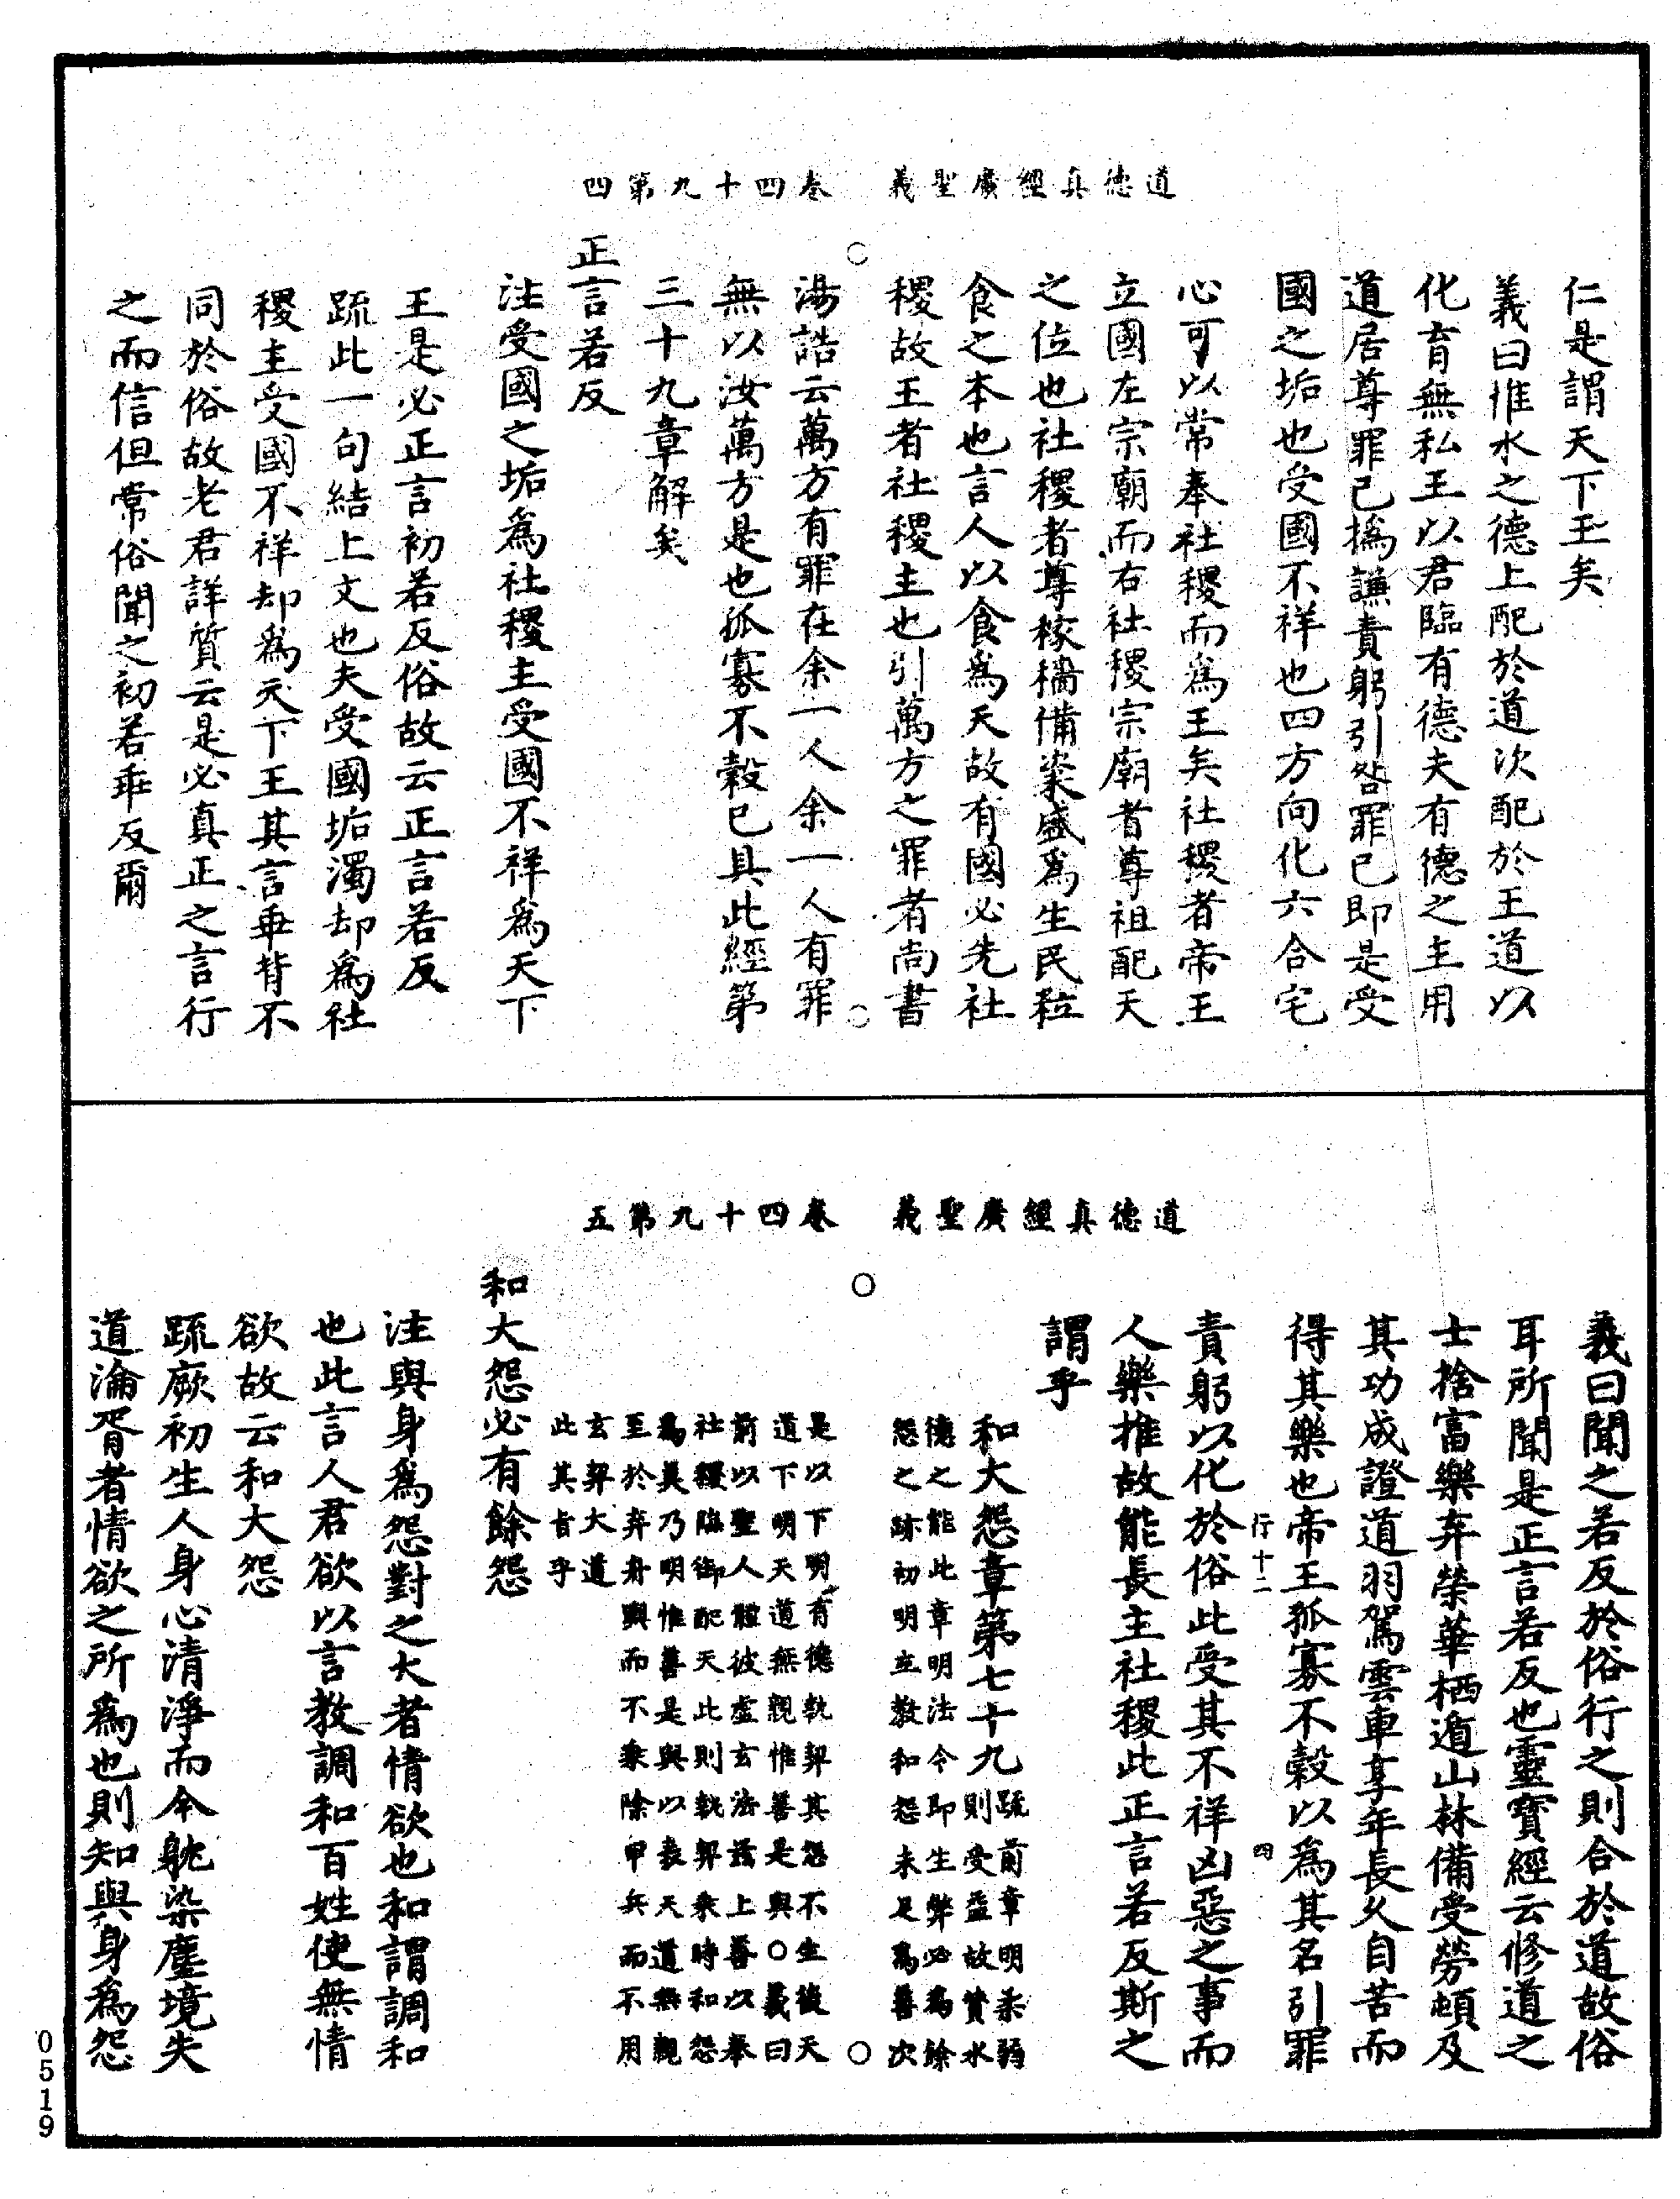 道德真經廣聖義　卷四十九第四
仁是謂天下王矣
義曰惟水之德上配於道次配於王王道以
化育無私王以君臨有德夫有德之主用
道居尊罪己撝謙責躬引咎罪己即是受
國之垢也受國不祥也四方向化六合宅
心可以常奉社稷而爲王矣社稷者帝王
立國左宗廟而右社稷宗廟者尊祖配天
之位也社稷者尊稼穡備粢盛爲生民粒
食之本也言人以食爲天故有國必先社
稷故王者社稷主也引萬方之罪者尚書
湯誥云萬方有罪在余一人余一人有罪
無以汝萬方是也孤寡不穀已具此經第
三十九章解矣
正言若反
注受國之垢爲社稷主受國不祥爲天下
王是必正言初若反俗故云正言若反
疏此一句結上文也夫受國垢濁却爲社
稷主受國不祥却爲天下王其言乖背不
同於俗故老君詳質云是必真正之言行
之而信但常俗聞之初若乖反爾
道德真經廣聖義　卷四十九第五
義曰聞之若反於俗行之則合於道故俗
耳所聞是正言若反也靈寶經云修道之
士捨富樂弃榮華栖遁山林備受勞頓及
其功成證道羽駕雲車享年長久自苦而
得其樂也帝王孤寡不穀以爲其名引罪
行十二　四
責躬以化於俗此受其不祥凶惡之事而
人樂推故能長主社稷此正言若反斯之
謂乎
和大怨章第七十九
疏前章明柔弱
則受益故贊水
德之能此章明法令即生弊必爲餘
怨之跡初明立教和怨未足爲善次
是以下明有德執契其怨不生後天
道下明天道無親惟善是與○義曰
前以聖人體彼虛玄法茲上善以奉
社稷臨御配天此則執契乘時和怨
爲美乃明惟善是與以表天道無親
至於弃舟輿而不乘除甲兵而不用
玄契大道
此其旨乎
和大怨必有餘怨
注與身爲怨對之大者情欲也和謂調和
也此言人君欲以言教調和百姓使無情
欲故云和大怨
疏厥初生人身心清淨而今躭染塵境失
道淪胥者情欲之所爲也則知與身爲怨
0519